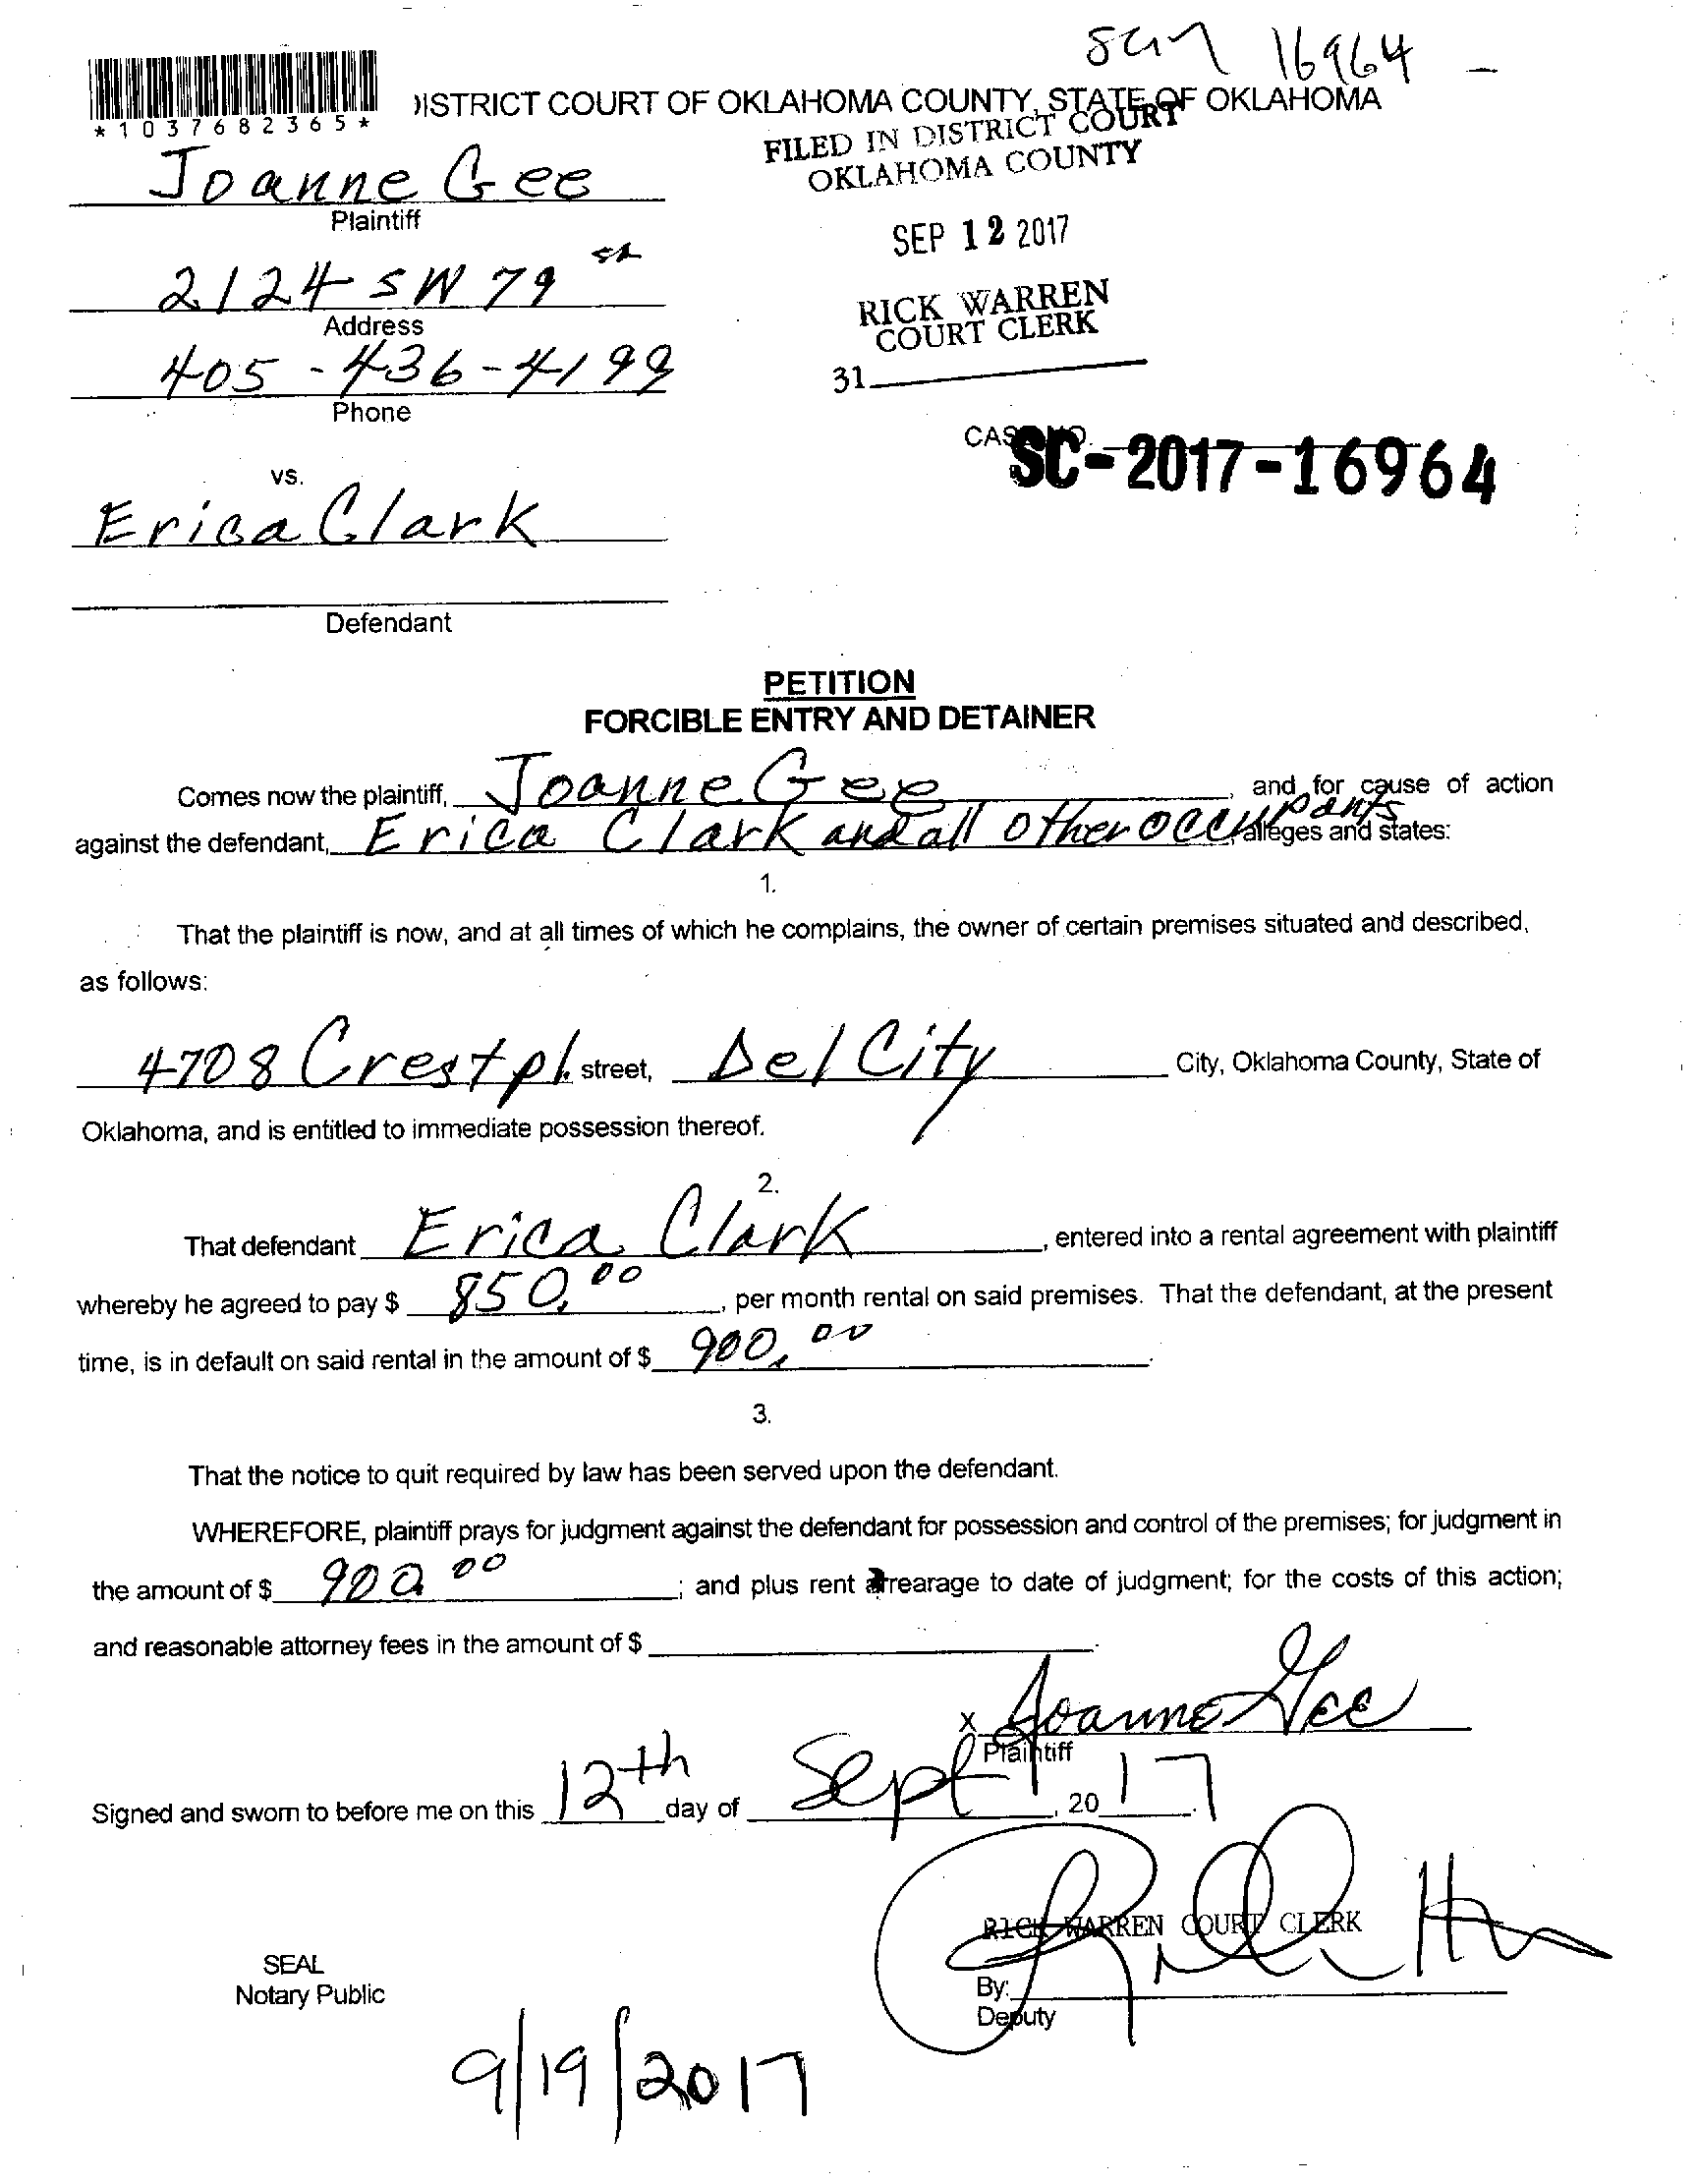 16964
*1037682365*
DISTRICT COURT OF OKLAHOMA COUNTY, STATE OF OKLAHOMA
FILED IN DISTRICT COURT
OKLAHOMA COUNTY
Joanne Gee
Plaintiff
SEP 12 2017
2124 SW 79 st
Address
RICK WARREN
COURT CLERK
405-436-4199
Phone
31
CASE NO. SC-2017-16964
vs.
Erica Clark
Defendant
PETITION
FORCIBLE ENTRY AND DETAINER
Comes now the plaintiff, Joanne Gee, and for cause of action
against the defendant, Erica Clark and all other occupants, alleges and states:
1.
That the plaintiff is now, and at all times of which he complains, the owner of certain premises situated and described,
as follows:
4708 Crest pl. street, Del City City, Oklahoma County, State of
Oklahoma, and is entitled to immediate possession thereof.
2.
That defendant Erica Clark, entered into a rental agreement with plaintiff
whereby he agreed to pay $ 850.00, per month rental on said premises. That the defendant, at the present
time, is in default on said rental in the amount of $ 900.00.
3.
That the notice to quit required by law has been served upon the defendant.
WHEREFORE, plaintiff prays for judgment against the defendant for possession and control of the premises; for judgment in
the amount of $ 900.00; and plus rent arrearage to date of judgment; for the costs of this action;
and reasonable attorney fees in the amount of $ .
x Joanne Gee
Plaintiff
Signed and sworn to before me on this 12th day of Sept, 2017.
RICK WARREN COURT CLERK
SEAL
Notary Public
By:
Deputy
9/19/2017